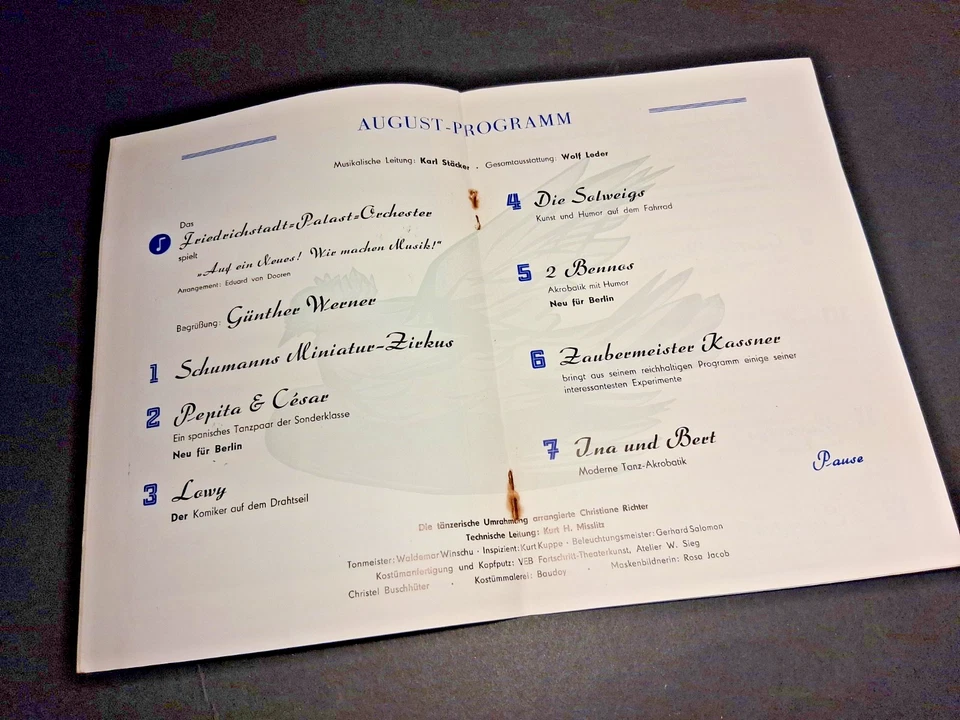 AUGUST-PROGRAMM
Musikalische Leitung: Karl Stäcker · Gesamtausstattung: Wolf Leder
Das
Friedrichstadt=Palast=Orchester
spielt
„Auf ein Neues! Wir machen Musik!“
Arrangement: Eduard van Dooren
Begrüßung: Günther Werner
1 Schumanns Miniatur-Zirkus
2 Pepita & César
Ein spanisches Tanzpaar der Sonderklasse
Neu für Berlin
3 Lowy
Der Komiker auf dem Drahtseil
4 Die Solweigs
Kunst und Humor auf dem Fahrrad
5 2 Bennos
Akrobatik mit Humor
Neu für Berlin
6 Zaubermeister Kassner
bringt aus seinem reichhaltigen Programm einige seiner
interessantesten Experimente
7 Ina und Bert
Moderne Tanz-Akrobatik
Pause
Die tänzerische Umrahmung arrangierte Christiane Richter
Technische Leitung: Kurt H. Misslitz
Tonmeister: Waldemar Winschu · Inspizient: Kurt Kuppe · Beleuchtungsmeister: Gerhard Salomon
Kostümanfertigung und Kopfputz: VEB Fortschritt-Theaterkunst, Atelier W. Sieg
Christel Buschhüter · Kostümmalerei: Bauday · Maskenbildnerin: Rosa Jacob